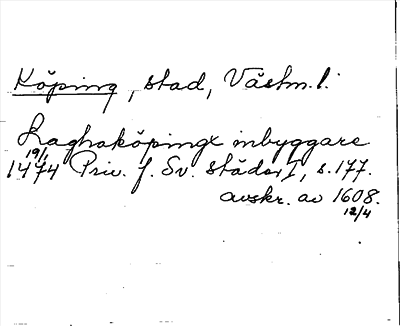 Köping, stad, Västm. l.
Laghakøpings inbyggare
19/1
1474 Priv. f. Sv. städer I, s. 177.
avskr. av 1608.
12/4